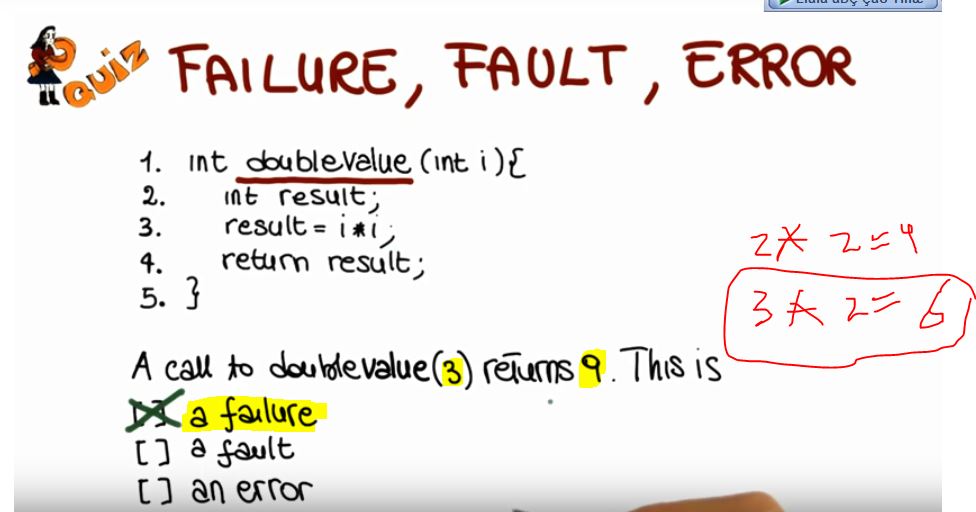 QUIZ FAILURE, FAULT, ERROR
1. int doubleValue (int i){
2. int result;
3. result = i*i;
4. return result;
5. }
2 * 2 = 4
3 * 2 = 6
A call to doubleValue(3) returns 9. This is
[ ] a failure
[ ] a fault
[ ] an error